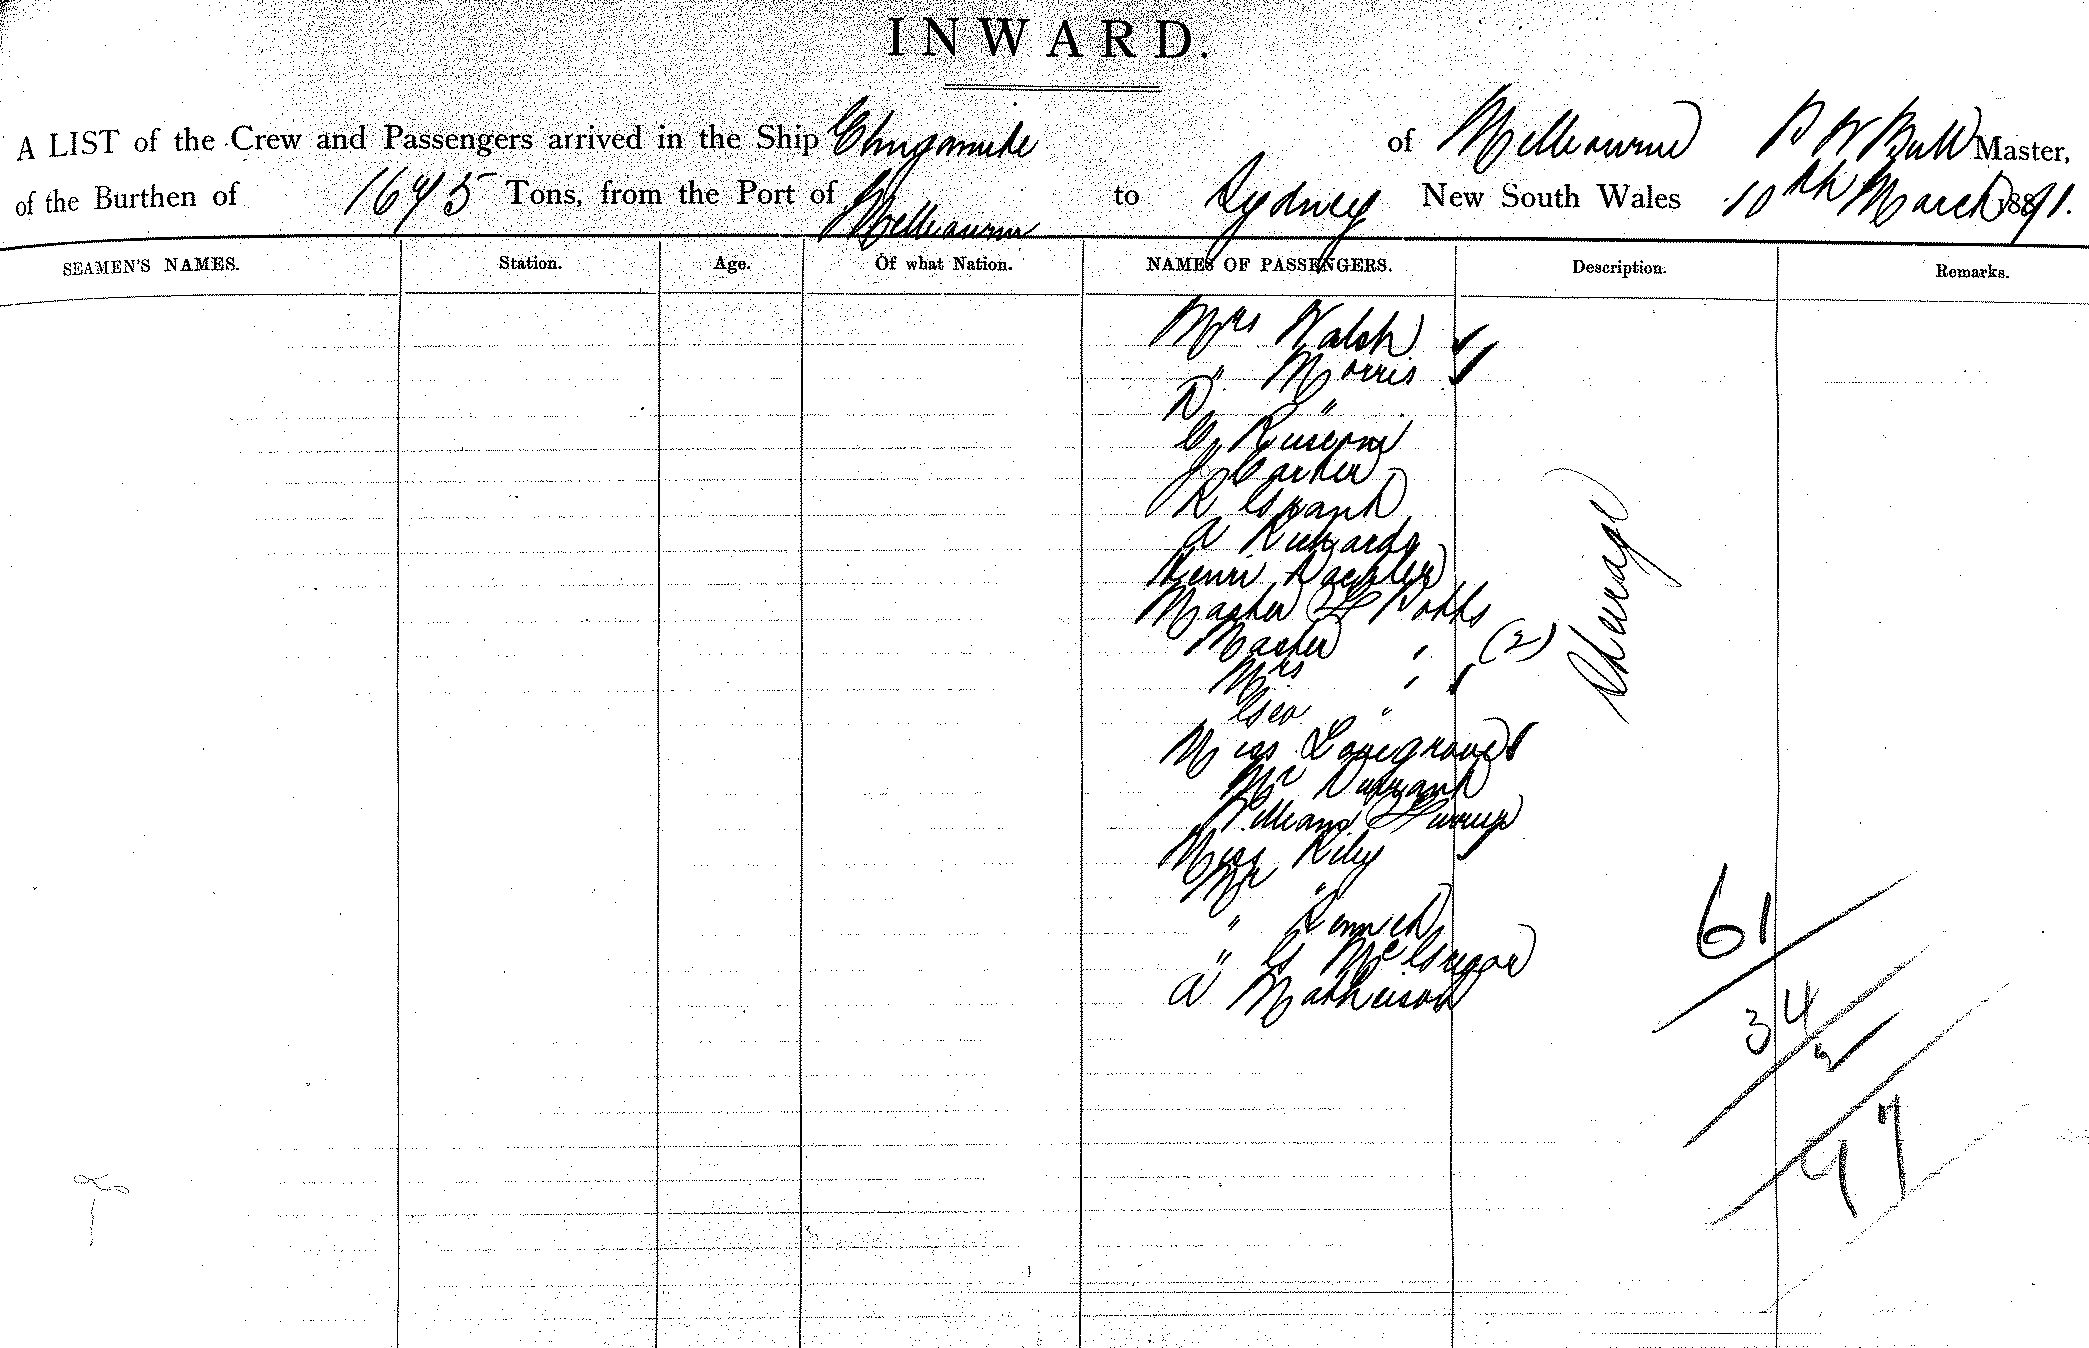 INWARD.
A LIST of the Crew and Passengers arrived in the Ship of Melbourne Master,
of the Burthen of Tons, from the Port of Melbourne to Sydney New South Wales 10th March 1891.
SEAMEN'S NAMES. Station. Age. Of what Nation. NAMES OF PASSENGERS. Description. Remarks.
Mrs Walsh
" Morris
D "
C Rusconi
J Carter
R Grant
A Richards
Henri
Master H Potts
Master " (2)
Mrs "
Geo "
Miss Lovegrove
Mr Durrant
William
Miss Riley
Mr "
"
" G McGregor
A Matheison
Steerage
61
34
2
97